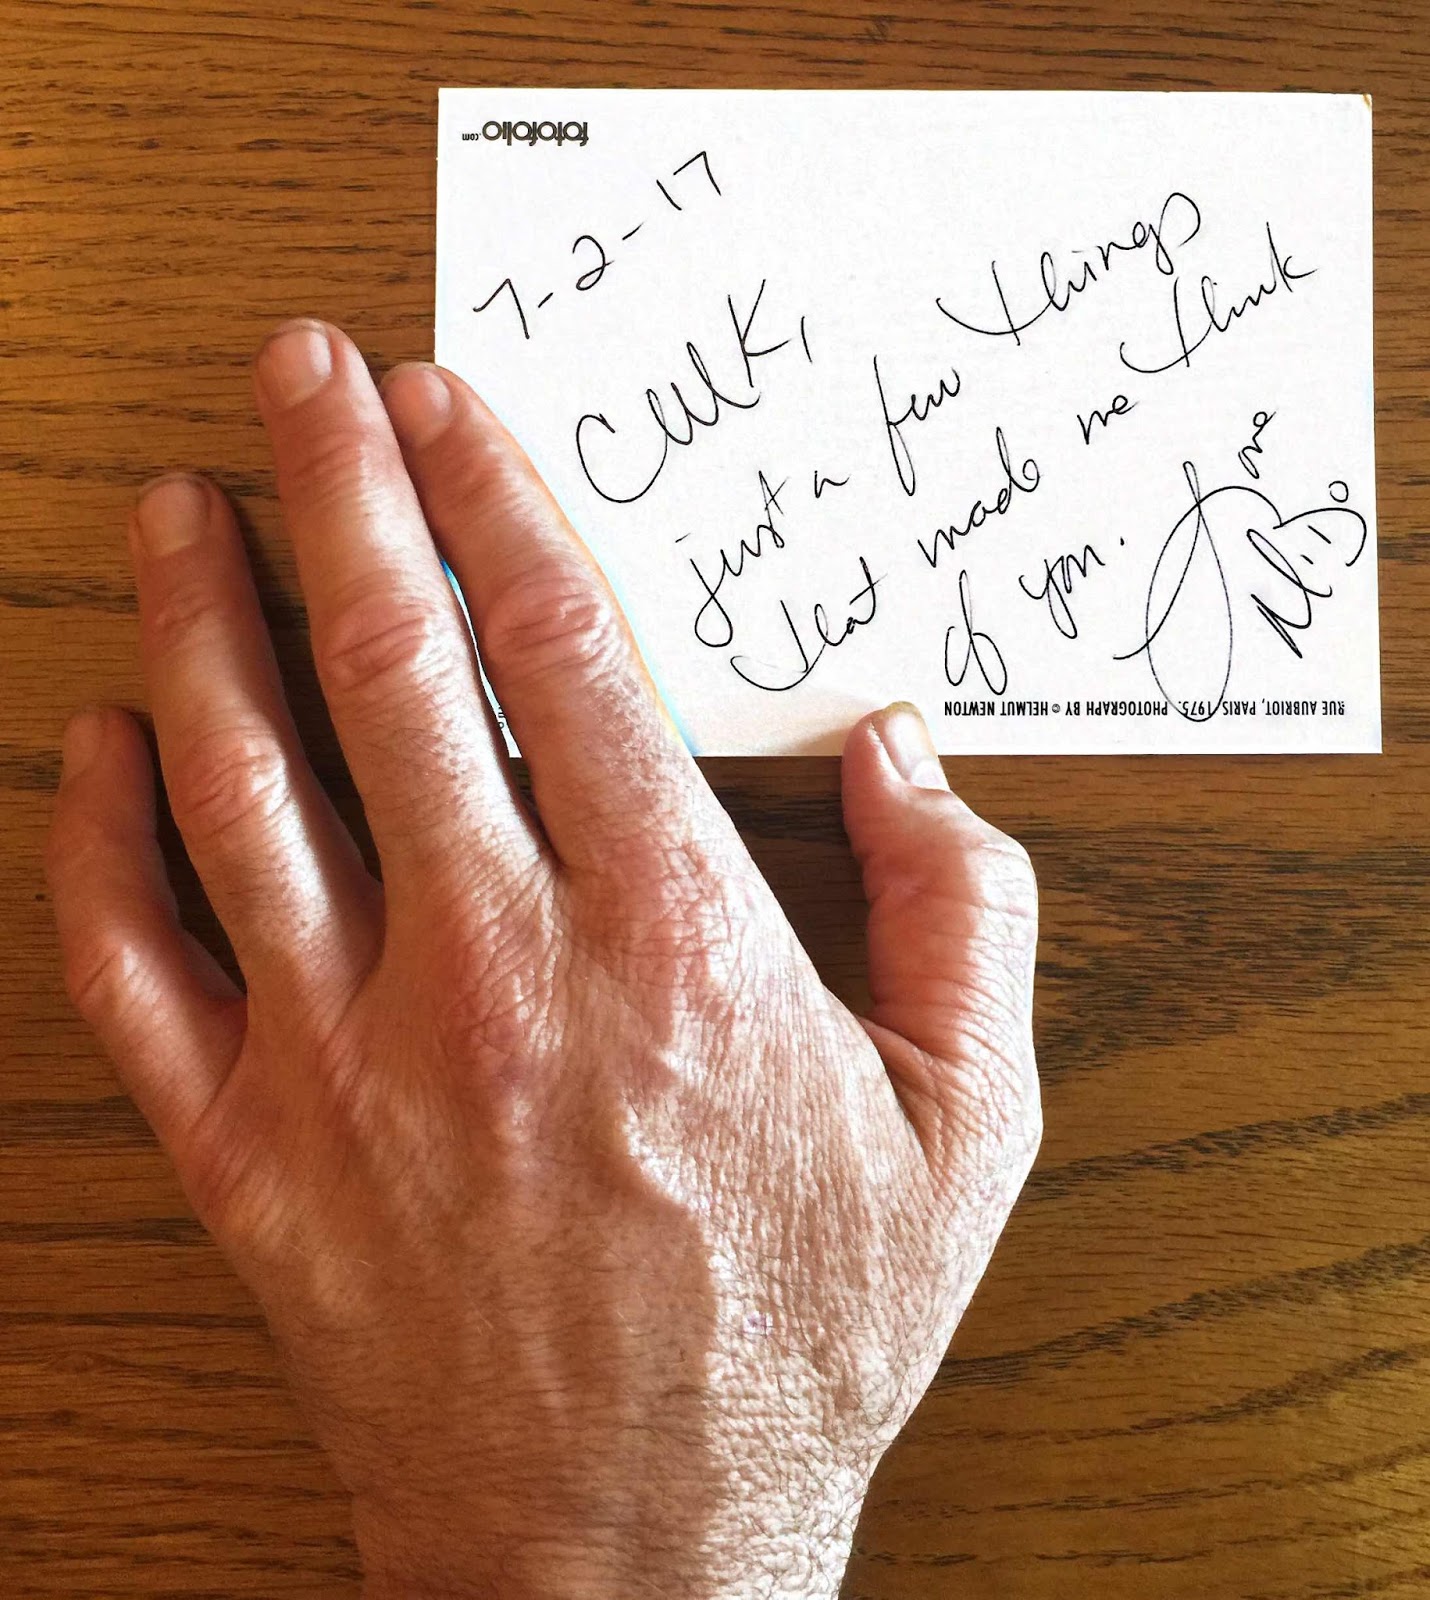 fotofolio.com
7-2-17
just a few things
that made me think
of you.
Love
RUE AUBRIOT, PARIS, 1975. PHOTOGRAPH BY © HELMUT NEWTON